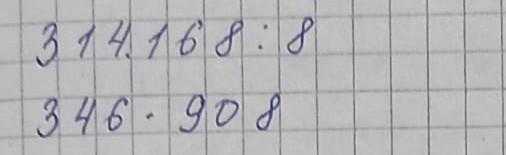 314.168:8
346·908